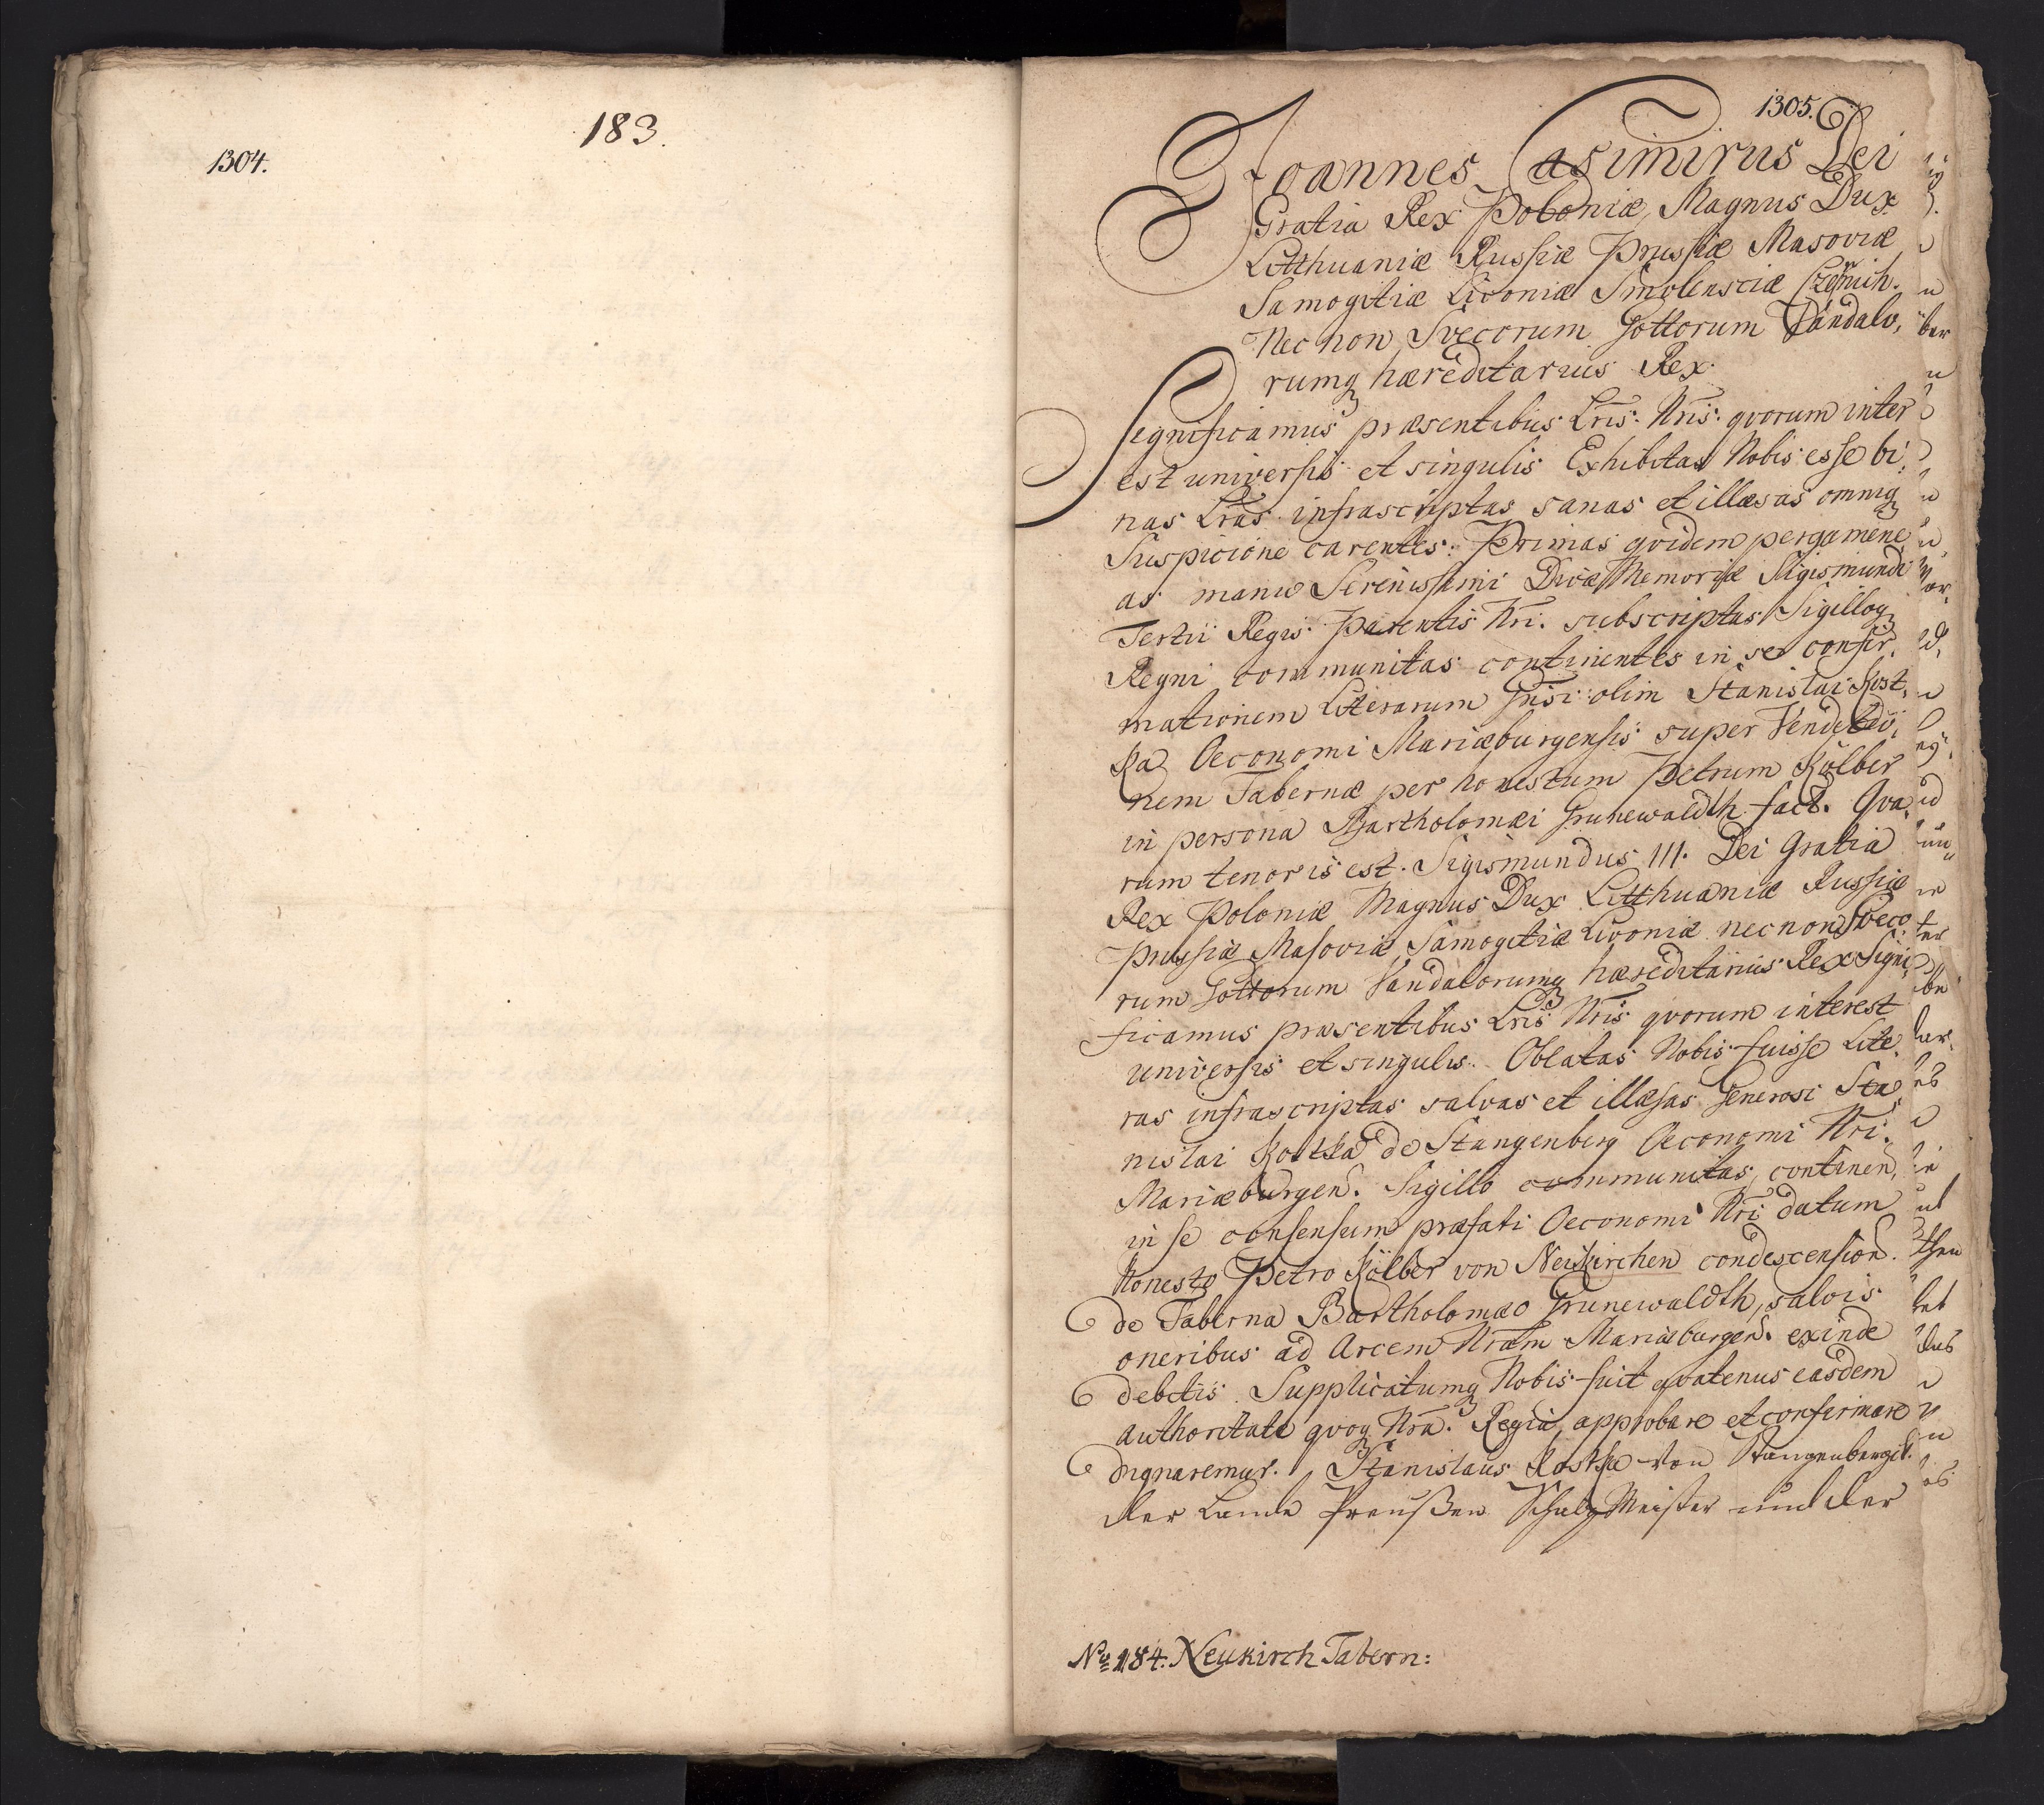 183.
1304.
1305.
Joannes Casimirus Dei
Gratia Rex Poloniæ, Magnus Dux
Litthuaniæ Russiæ Prussiæ Masoviæ
Samogitiæ Livoniæ Smolensciæ Czernich.
Nec non Svecorum Gottorum Vandalo,
rumq hæreditarius Rex.
Significamus præsentibus Lris. Nris. qvorum inter
est universis et singulis Exhibitas Nobis esse bi,
nas Lras infrascriptas sanas et illæsas omniq
Suspicione carentes. Primas qvidem pergamene,
as manu Serenissimi Divæ Memoriæ Sigismundi
Tertii Regis Parentis Nri. subscriptas Sigilloq
Regni communitas continentes in se confir,
mationem Literarum Gnsi olim Stanislai Kost,
ka Oeconomi Mariæburgensis super Venditio,
nem Tabernæ per honestum Petrum Kölber
in persona Bartholomæi Grunewaldth fact. Qva,
rum tenor is est. Sigismundus III. Dei Gratia
Rex Poloniæ Magnus Dux Litthuaniæ Russiæ
Prussiæ Masoviæ, Samogitiæ Livoniæ nec non Sveco,
rum Gottorum Vandalorumq hæreditarius Rex Signi,
ficamus præsentibus Lris Nris qvorum interest
universis et singulis. Oblatas Nobis fuisse Lite,
ras infrascriptas salvas et illæsas Generosi Sta,
nislai Kostka de Stangenberg Oeconomi Nri.
Mariæburgen. Sigillo communitas, continen,
in se consensum præfati Oeconomi Nri datum
Honesto Petro Kölber von Neukirchen condescension.
de Taberna Bartholomæo Grunewaldth, salvis
oneribus ad Arcem Nram Mariæburgen. exinde
debitis. Supplicatumq Nobis fuit qvatenus easdem
authoritate qvoq Nra. Regia, approbare et confirmare
dignaremur. Stanislaus Kostka von Stangenberg
der Lande Preußen Schatz Meister und der
No 184. Neukirch Tabern: